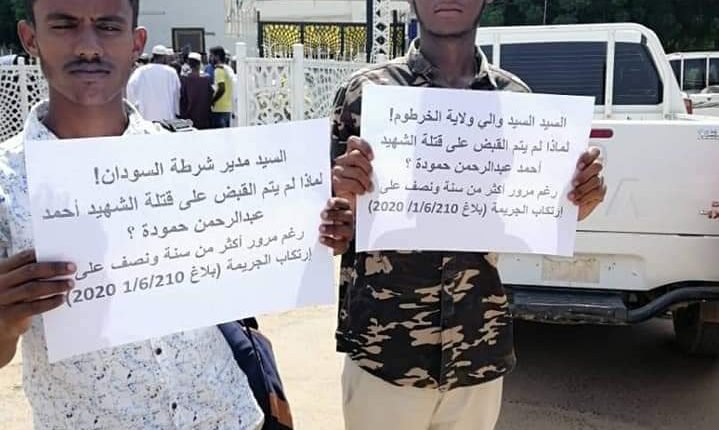 السيد مدير شرطة السودان!
لماذا لم يتم القبض على قتلة الشهيد أحمد
عبدالرحمن حمودة ؟
رغم مرور أكثر من سنة ونصف على
إرتكاب الجريمة (بلاغ 1/6/210 2020)
السيد السيد والي ولاية الخرطوم!
لماذا لم يتم القبض على قتلة الشهيد
أحمد عبدالرحمن حمودة ؟
رغم مرور أكثر من سنة ونصف على
إرتكاب الجريمة (بلاغ 1/6/210/ 2020)